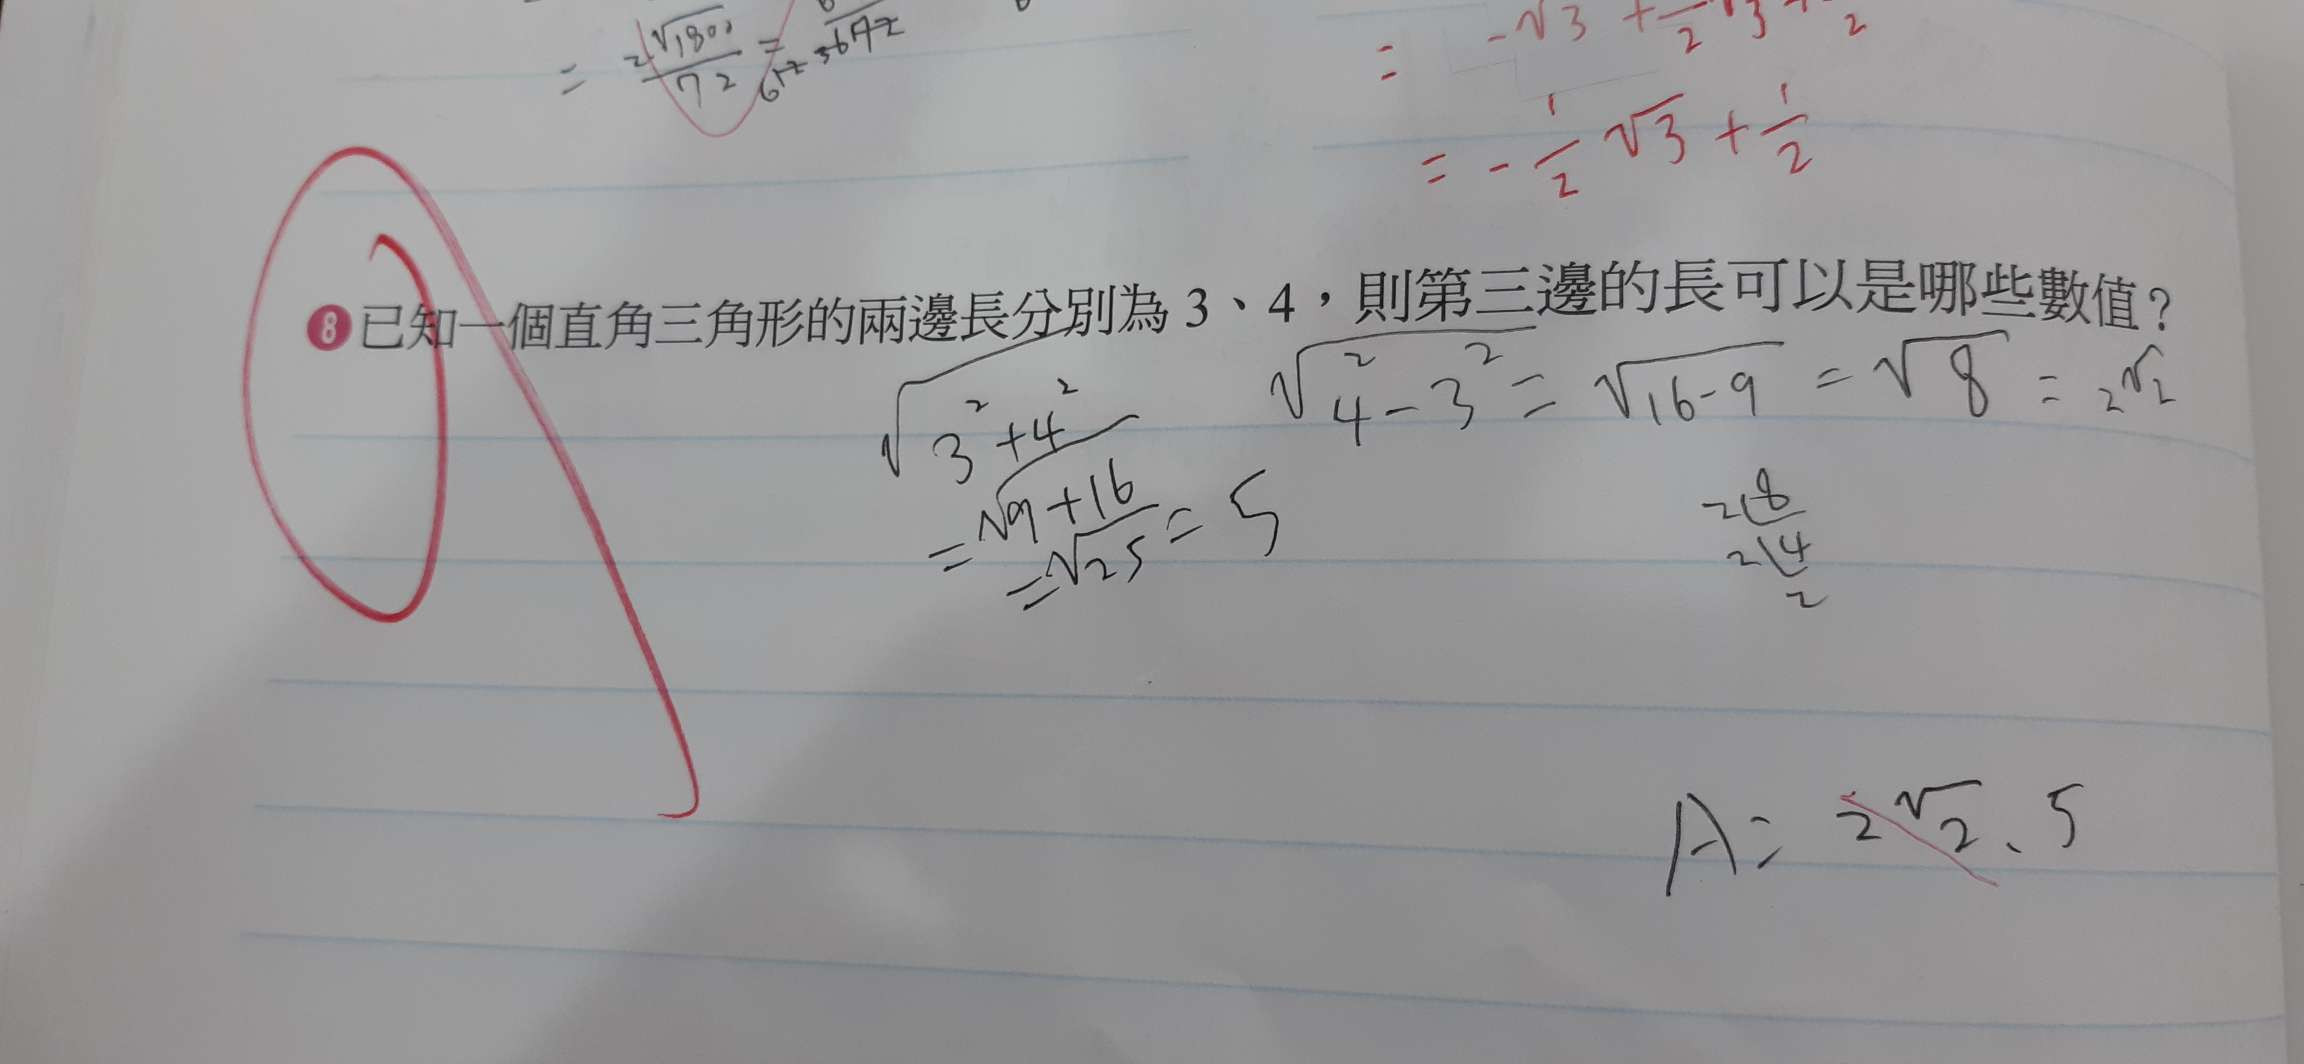 = 2√1800/72 =
= -√3 +
= -1/2 √3 + 1/2
❽已知一個直角三角形的兩邊長分別為 3、4，則第三邊的長可以是哪些數值？
√3²+4²
=√9+16
=√25 = 5
√4²-3² = √16-9 = √8 = 2√2
2 8
2 4
2
A= 2√2、5